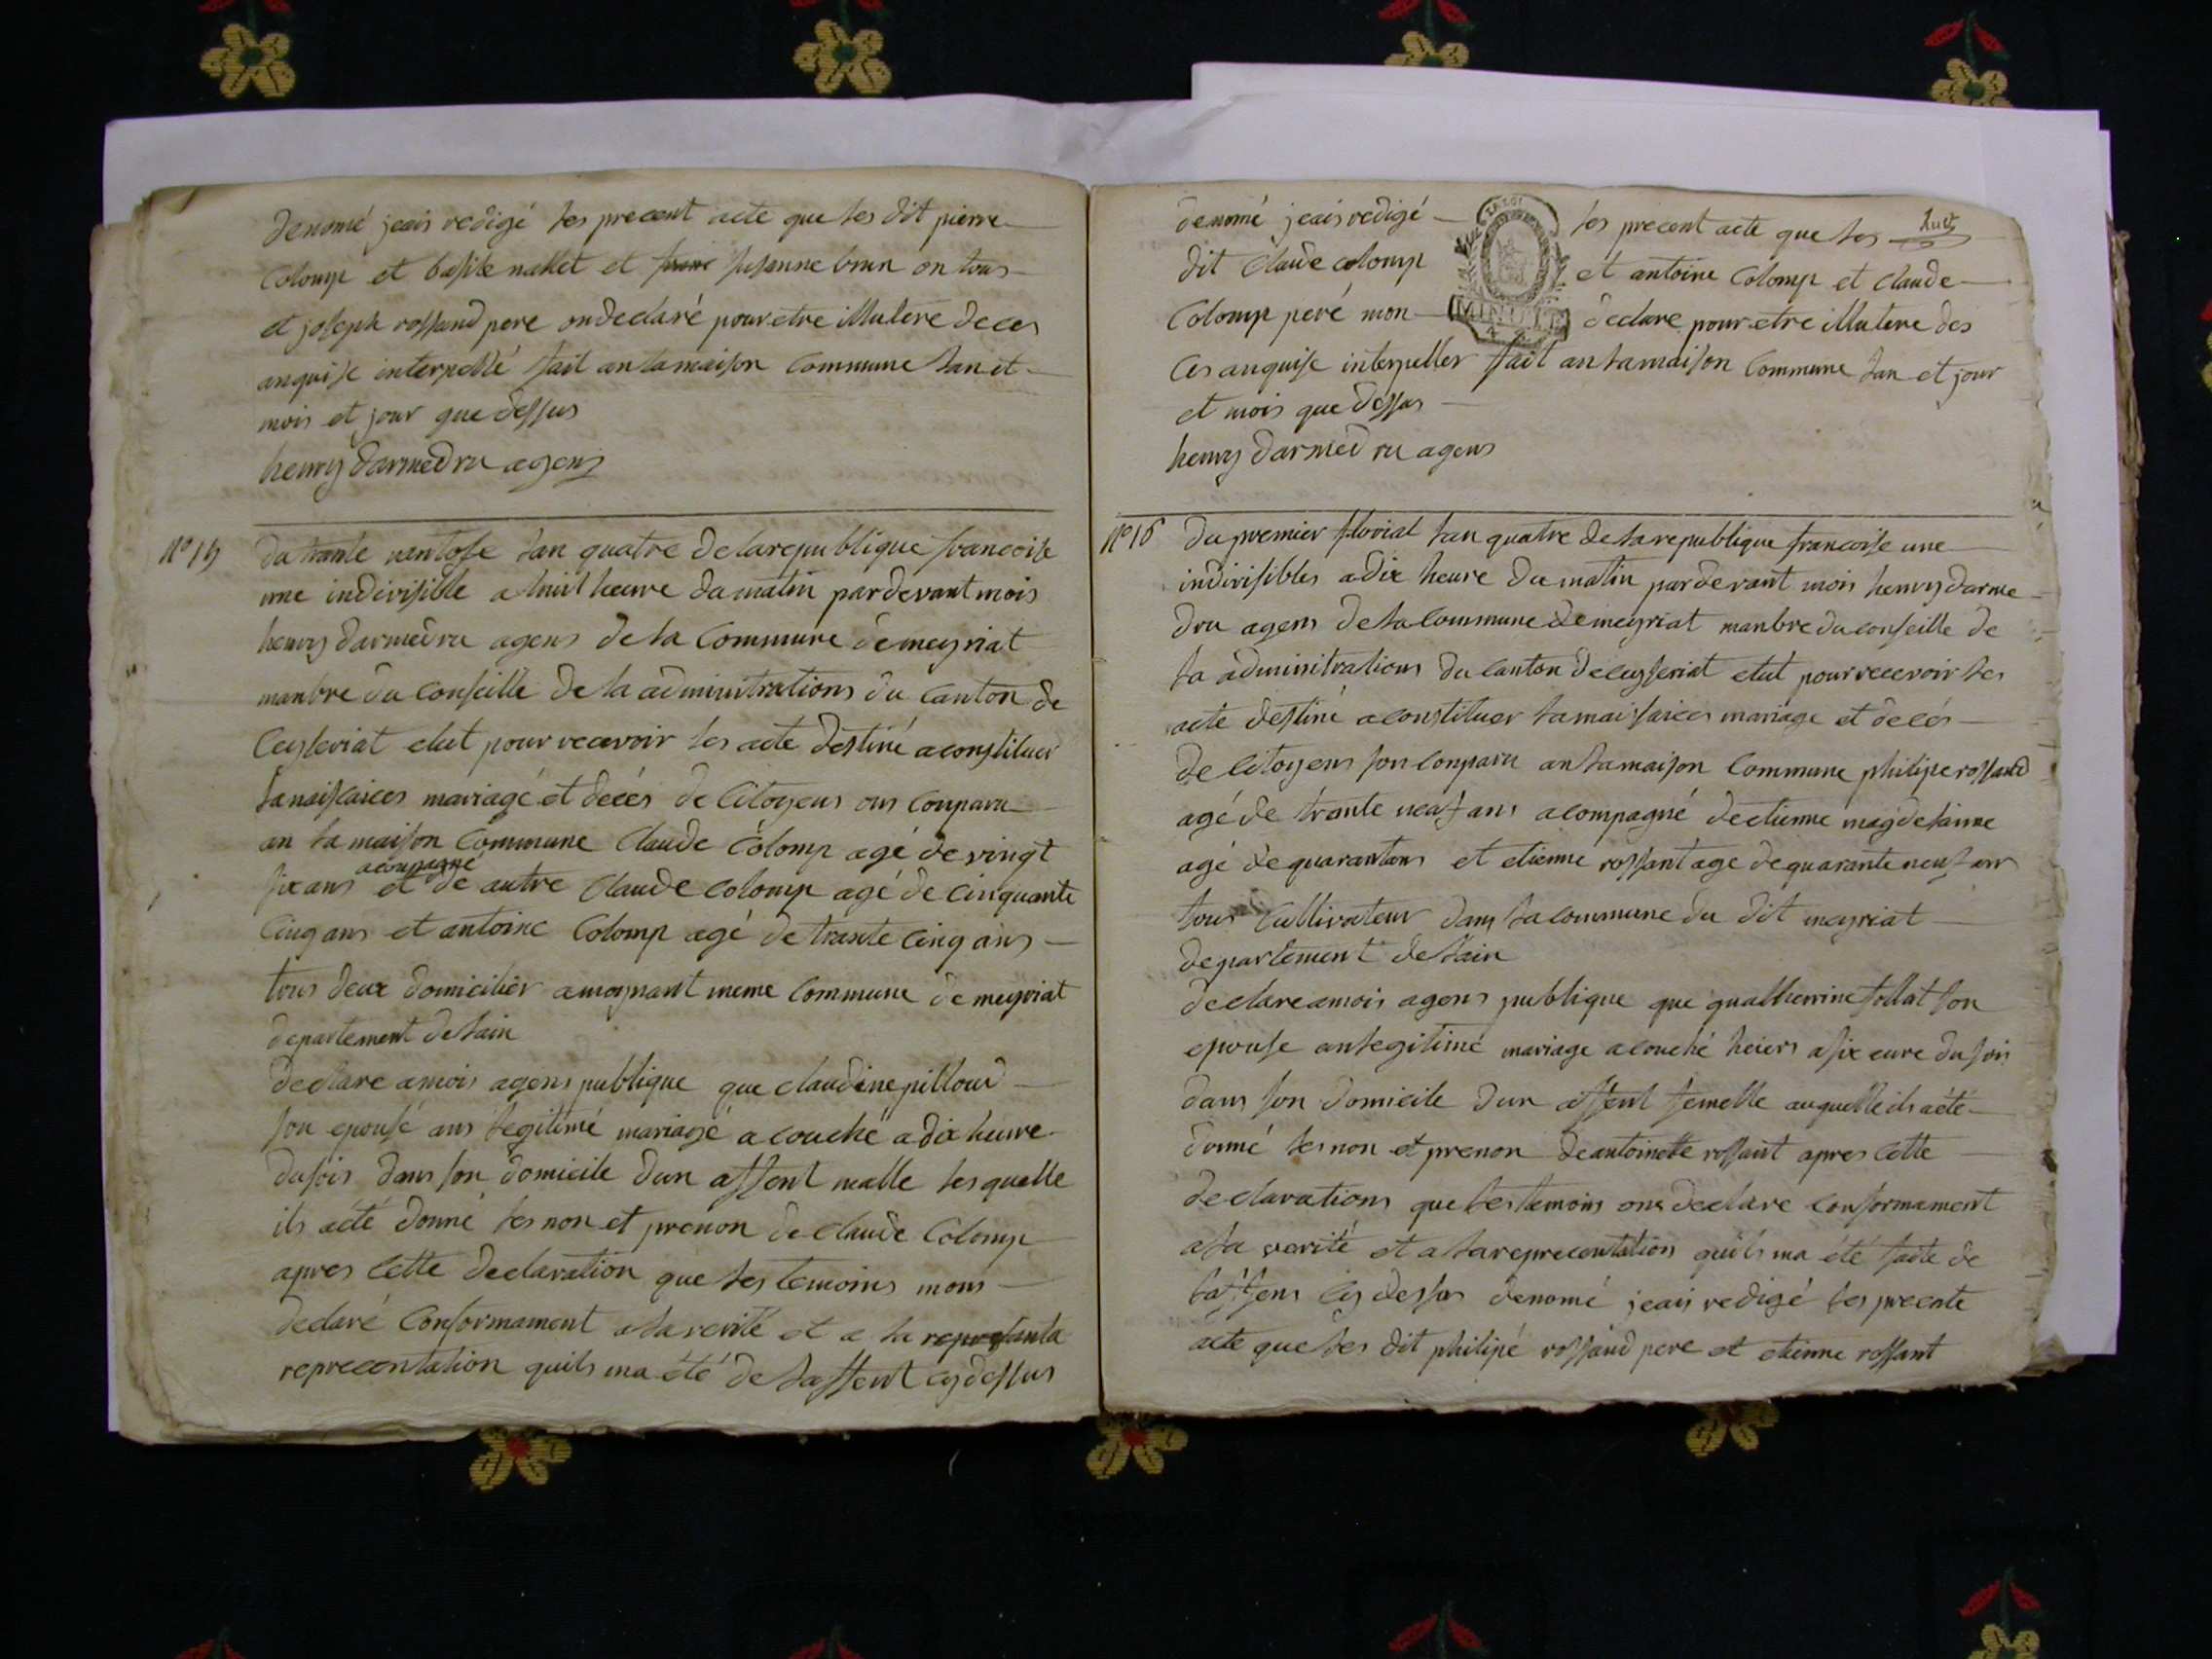 denomé jeais redigé les precent acte que les dit pierre
Colomp et basile nallet et susanne brun on tous
et joseph rossand pere on declaré pour etre illutere de ces
anquise interpellé fait an la maison Commune lan et
mois et jour que dessus
henry darmedru agens
N° 15 du trante vantose lan quatre de la republique francoise
une indivisible a huit heure du matin par devant mois
henry darmedru agens de la Commune de meyriat
manbre du Conseille de la administrations du Canton de
Ceyseriat elut pour recevoir les acte destiné a constituer
la naissances mariagé et décés de Citoyens ons Conparu
an la maison Commune Claude Colomp agé de vingt
acompagné
six ans et de autre Claude colomp agé de Cinquante
Cinq ans et antoine Colomp agé de trante Cinq ans
tous deux domicilier amoynant meme Commune de meyriat
departement de lain
declare a mois agens publique que claudine pilloud
son epousé ans legitimé mariagé a couché a dix heure
du sois dans son domicile dun affent malle les quelle
ils a été donné les non et prenon de Claude Colomp
apres Cette declaration que les temoins mons
declaré Conformament a la verité et a la
reprecentation quils ma été de laffent cy dessus
denomé jeais redigé les precent acte que les
dit Claude colomp et antoine Colomp et claude
Colomp peré mon declare pour etre illutere des
Ces anquise interpeller fait an la maison Commune lan et jour
et mois que dessus
henry darmedru agens
MINUTE
N° 16 du premier florial lan quatre de la republique francoise une
indivisibles a dix heure du matin par devant mois henry darme
dru agens de la Commune de meyriat manbre du conseille de
la administrations du Canton de ceyseriat elut pour recevoir les
acte destiné a constituer la naissances mariage et decés
de Citoyens son Conparu an la maison Commune philipe rossand
agé de trante neuf ans acompagné de etienne magdelaine
agé de quarantans et etienne rossant age de quarante neuf ans
tous Cultivateur dans la commune du dit meyriat
departement de lain
declare a mois agens publique que quatherine follat son
epouse an legitimé mariage a couché heiers a six eure du sois
dans son domicile dun affent femelle auquelle ils a été
donné les non et prenon de antoinette rossant apres Cette
declarations que les temoins ons declare conformament
a la verité et a la reprecentation quils ma été faite de
laffens cy dessus denomé jeais redigé les precente
acte que les dit philipé rossand pere et etienne rossant